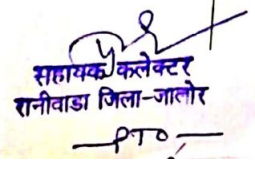 सहायक कलेक्टर
रानीवाडा जिला-जालोर
PTO